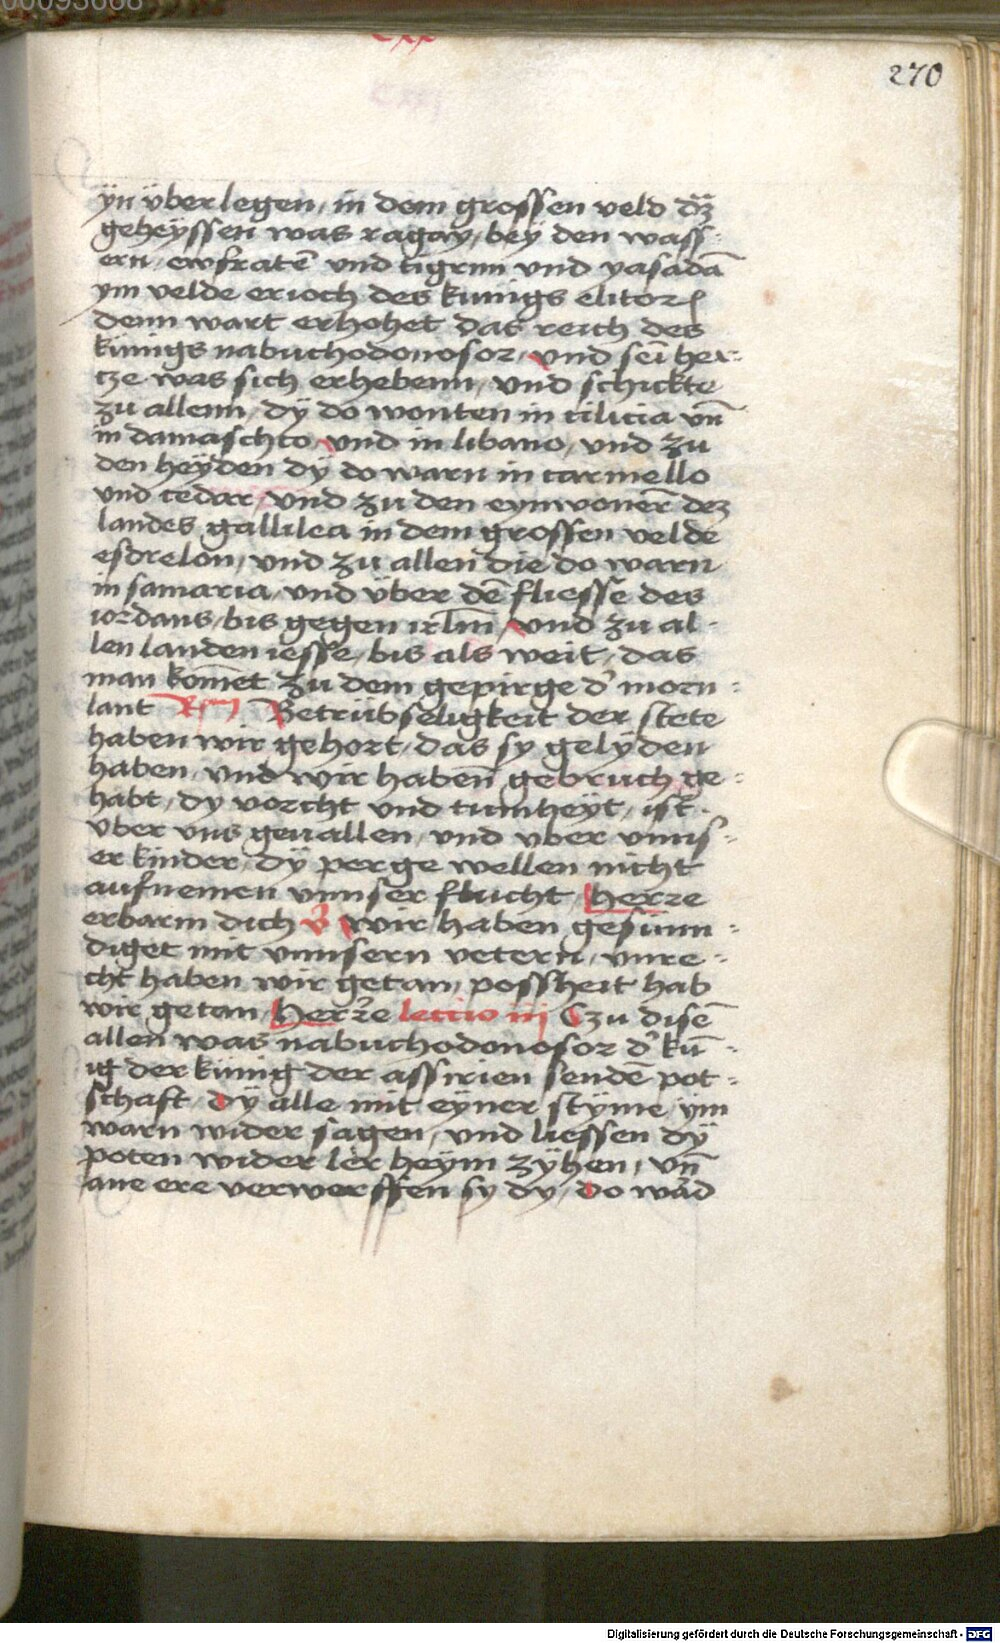 00093668
cxx
270
ÿn überlegen, in dem grossen veld dz̄
geheÿssen was ragaÿ, beÿ den wass-
ern, ewfratē und tigrim und yasadā
ym velde erioch des kunigs elitorū
denn wart erhohet das reich des
künigs nabuchodonosor, und sēi her-
tze was sich erhebenn, und schickte
zu allenn, dÿ do wonten in cilicia vn̄
in damaschco, und in libano, und zu
den heÿden dÿ do warn in carmello
und cedar, und zu den eynwonēr dez
landes gallilea in dem grossen velde
esdrelon, und zu allen die do warn
in samaria, und über dē fliesse des
iordans, bis gegen irl̄m, und zu al-
len landen iesse, bis als weit, das
man kom̄et zu dem gepirge d' morn-
lant Rm̄ Betrübseligkeit der stete
haben wir gehort, das sy gelÿden
haben, und wir habēn gebruch ge-
habt, dy vorcht und tumheÿt, ist
über uns geuallen, und uber unns-
er kinder, dÿ perge wellen nicht
aufnemen unnser flucht, herre
erbarm dich v̄ wir haben gesunn-
diget mit unnsern vetern, unre-
cht haben wir getan, possheit hab
wir getan, herre lectio iij Czu disē
allen was nabuchodonosor d' kū-
ig der künig der assirien sendē pot-
schaft, dÿ alle mit eÿner stÿme ym
warn wider sagen, und liessen dÿ
poten wider ler heÿm zÿhen, vn̄
ane ere verwerffen sy dy, do ward
Digitalisierung gefördert durch die Deutsche Forschungsgemeinschaft - DFG